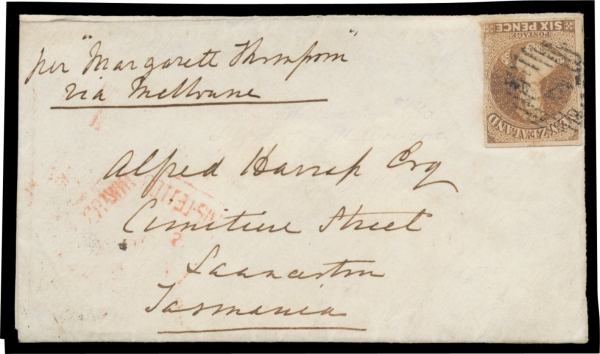 per "Margarett Thompson"
via Melbourne
SIX PENCE
POSTAGE
NEW ZEALAND
Alfred Harrap Esq
Street
Launceston
Tasmania